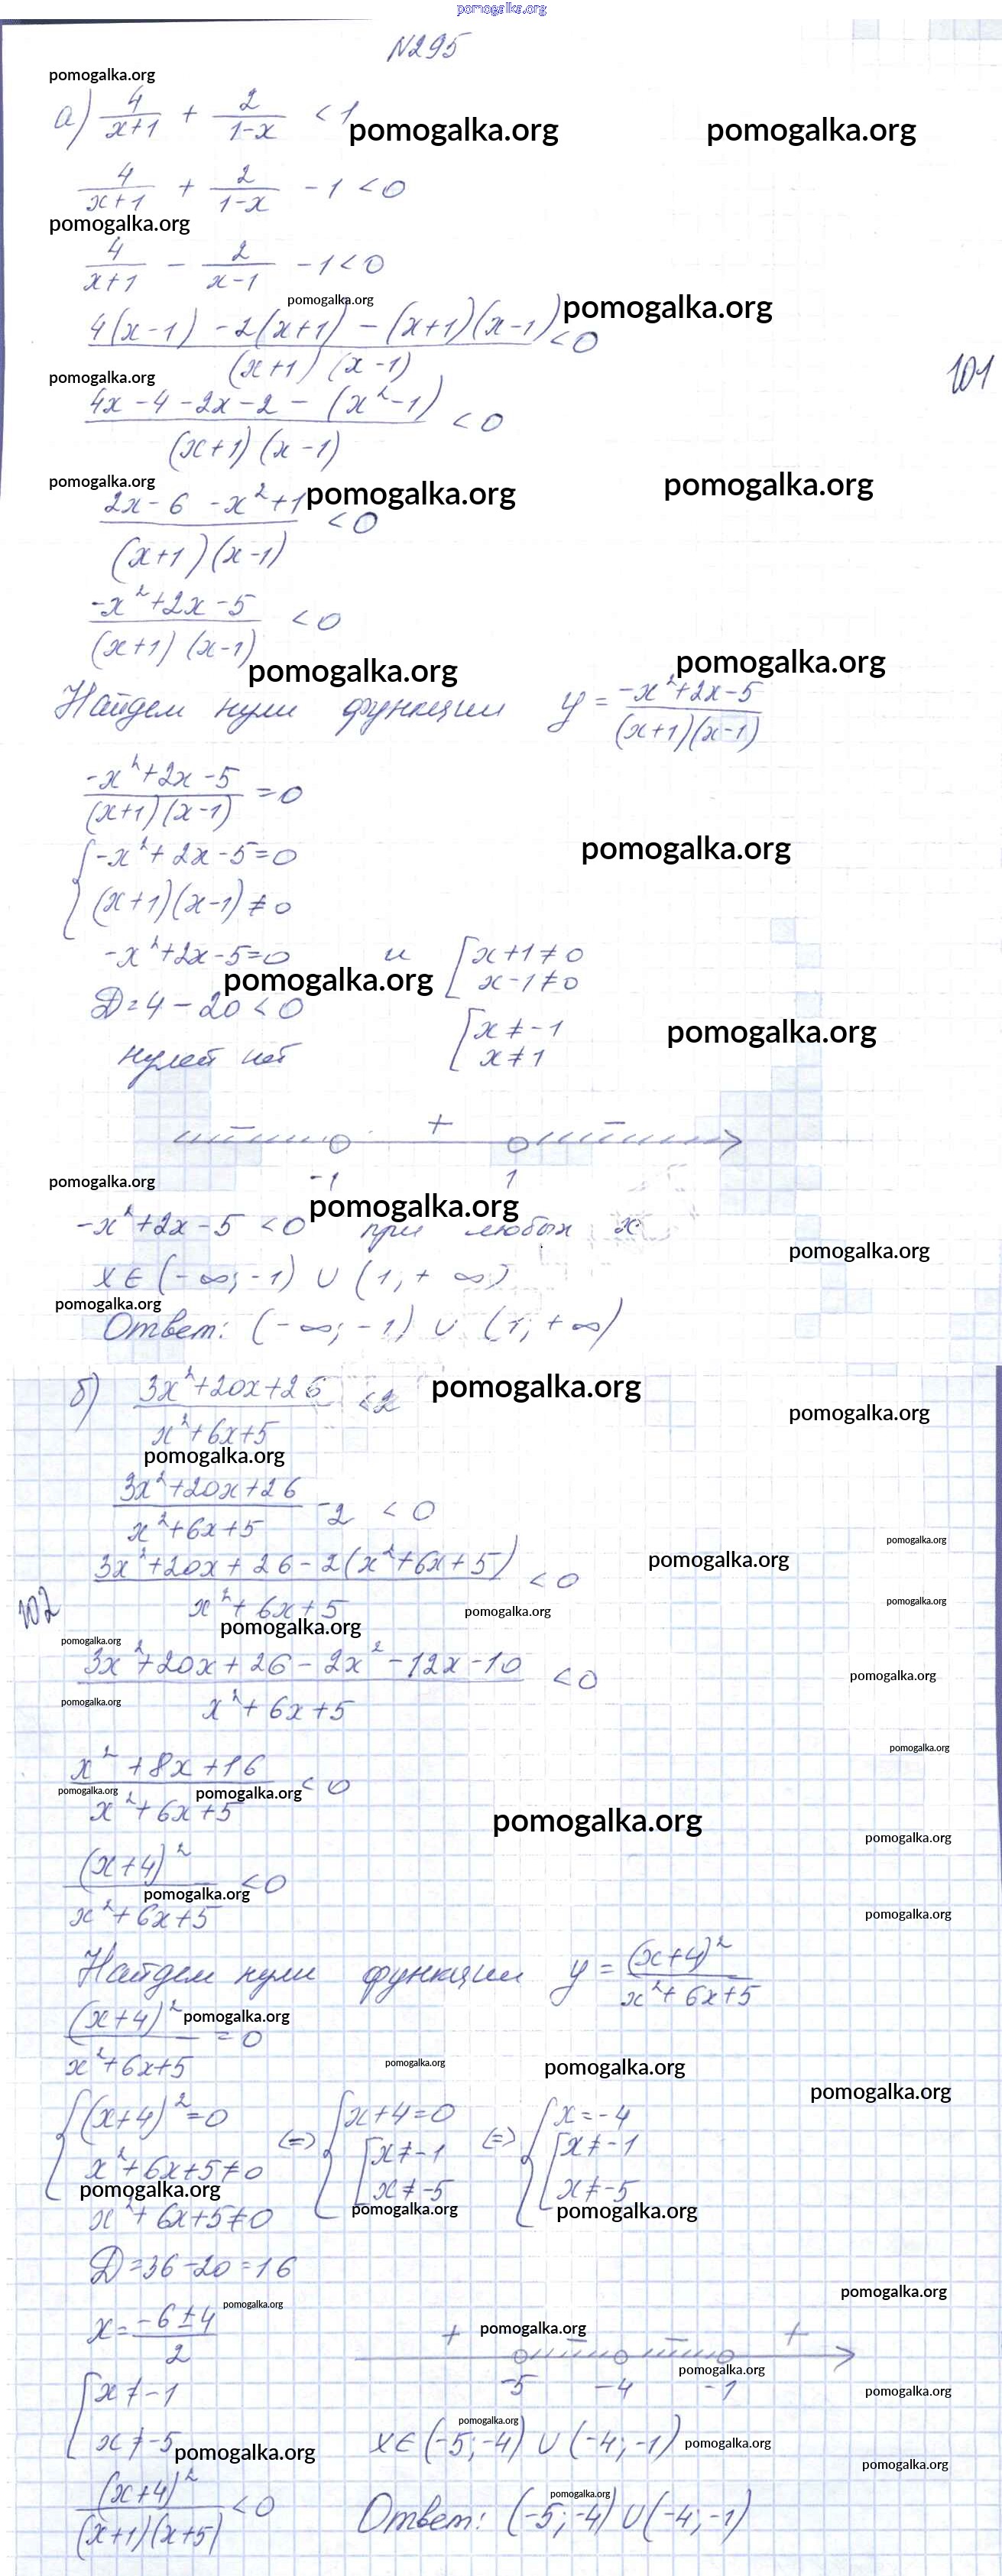 pomogalka.org
N295
pomogalka.org
а) 4/(x+1) + 2/(1-x) < 1
pomogalka.org pomogalka.org
4/(x+1) + 2/(1-x) - 1 < 0
pomogalka.org
4/(x+1) - 2/(x-1) - 1 < 0
pomogalka.org pomogalka.org
(4(x-1) - 2(x+1) - (x+1)(x-1))/((x+1)(x-1)) < 0
101
pomogalka.org
(4x-4-2x-2-(x²-1))/((x+1)(x-1)) < 0
pomogalka.org pomogalka.org pomogalka.org
(2x-6-x²+1)/((x+1)(x-1)) < 0
(-x²+2x-5)/((x+1)(x-1)) < 0
pomogalka.org pomogalka.org
Найдем нули функции y = (-x²+2x-5)/((x+1)(x-1))
(-x²+2x-5)/((x+1)(x-1)) = 0
pomogalka.org
{ -x²+2x-5=0
(x+1)(x-1)≠0
-x²+2x-5=0 и [ x+1≠0
pomogalka.org x-1≠0
D=4-20<0 [ x≠-1
pomogalka.org
нулей нет x≠1
- + -
-1 1
pomogalka.org pomogalka.org
-x²+2x-5<0 при любых x
pomogalka.org
x∈(-∞;-1)∪(1;+∞)
pomogalka.org
Ответ: (-∞;-1)∪(1;+∞)
б) (3x²+20x+26)/(x²+6x+5) < 2
pomogalka.org pomogalka.org
pomogalka.org
(3x²+20x+26)/(x²+6x+5) - 2 < 0
pomogalka.org
(3x²+20x+26-2(x²+6x+5))/(x²+6x+5) < 0
pomogalka.org
102
pomogalka.org pomogalka.org
pomogalka.org
pomogalka.org
(3x²+20x+26-2x²-12x-10)/(x²+6x+5) < 0
pomogalka.org
pomogalka.org
pomogalka.org
(x²+8x+16)/(x²+6x+5) < 0
pomogalka.org pomogalka.org
pomogalka.org
pomogalka.org
(x+4)²/(x²+6x+5) < 0
pomogalka.org
pomogalka.org
Найдем нули функции y = (x+4)²/(x²+6x+5)
(x+4)²/(x²+6x+5) = 0
pomogalka.org
pomogalka.org pomogalka.org
pomogalka.org
{ (x+4)²=0 (=) { x+4=0 (=) { x=-4
x²+6x+5≠0 [ x≠-1 [ x≠-1
x≠-5 x≠-5
pomogalka.org pomogalka.org pomogalka.org
x²+6x+5≠0
D=36-20=16
pomogalka.org
pomogalka.org
x=(-6±4)/2
+ pomogalka.org - - +
pomogalka.org
-5 -4 -1
pomogalka.org
[ x≠-1
x≠-5
pomogalka.org
x∈(-5;-4)∪(-4;-1)
pomogalka.org
pomogalka.org
pomogalka.org
(x+4)²/((x+1)(x+5)) < 0
pomogalka.org
Ответ: (-5;-4)∪(-4;-1)